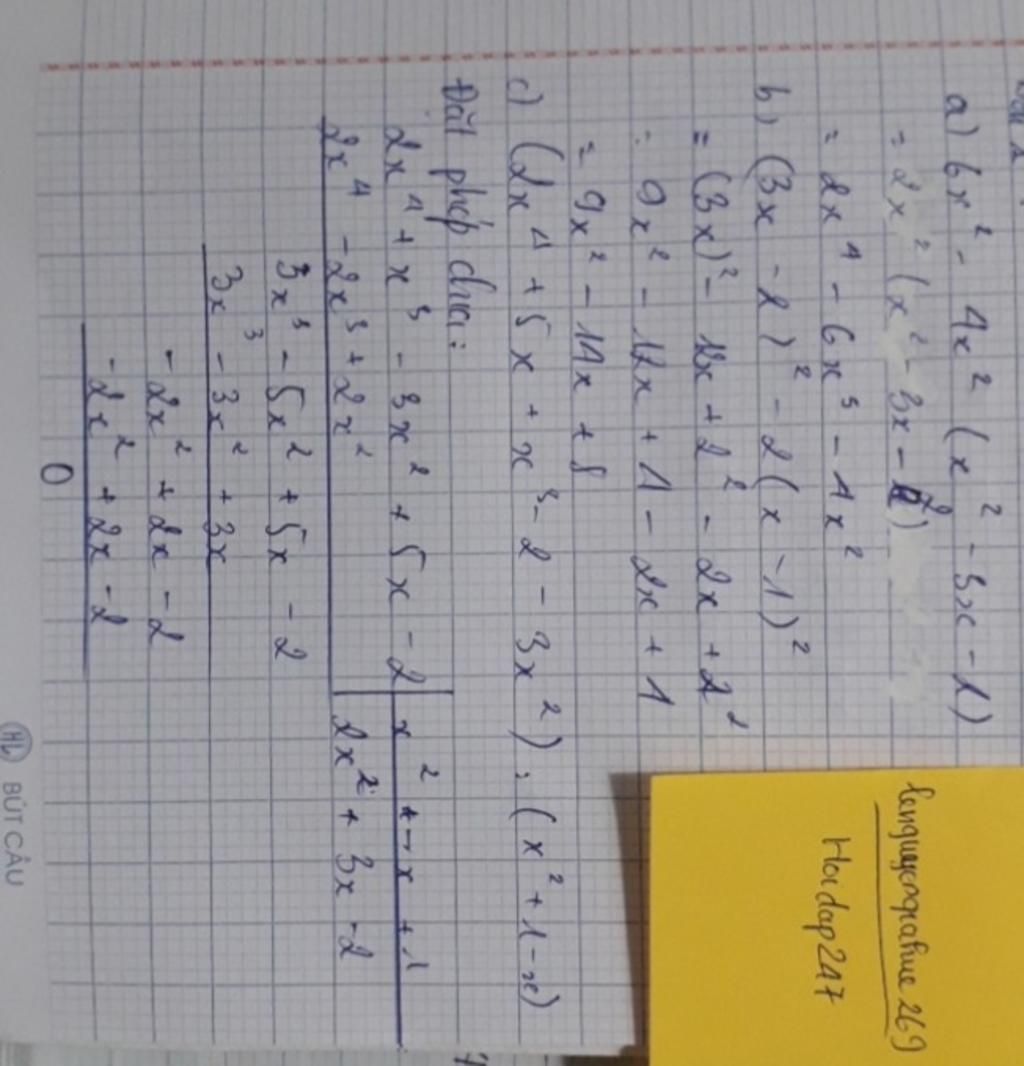 a) 6x² - 4x² (x² - 3x - 1)
= 2x² (x² - 3x - 2)
= 2x⁴ - 6x³ - 4x²
b) (3x - 2)² - 2(x - 1)²
= (3x)² - 12x + 2² - 2x + 1²
= 9x² - 12x + 4 - 2x + 1
= 9x² - 14x + 5
c) (2x⁴ + 5x + x³ - 2 - 3x²) : (x² + 1 - x)
Đặt phép chia:
2x⁴ + x³ - 3x² + 5x - 2 | x² - x + 1
2x⁴ - 2x³ + 2x² | 2x² + 3x - 2
3x³ - 5x² + 5x - 2
3x³ - 3x² + 3x
- 2x² + 2x - 2
- 2x² + 2x - 2
0
Hoidap247
HL BÚT CÂU